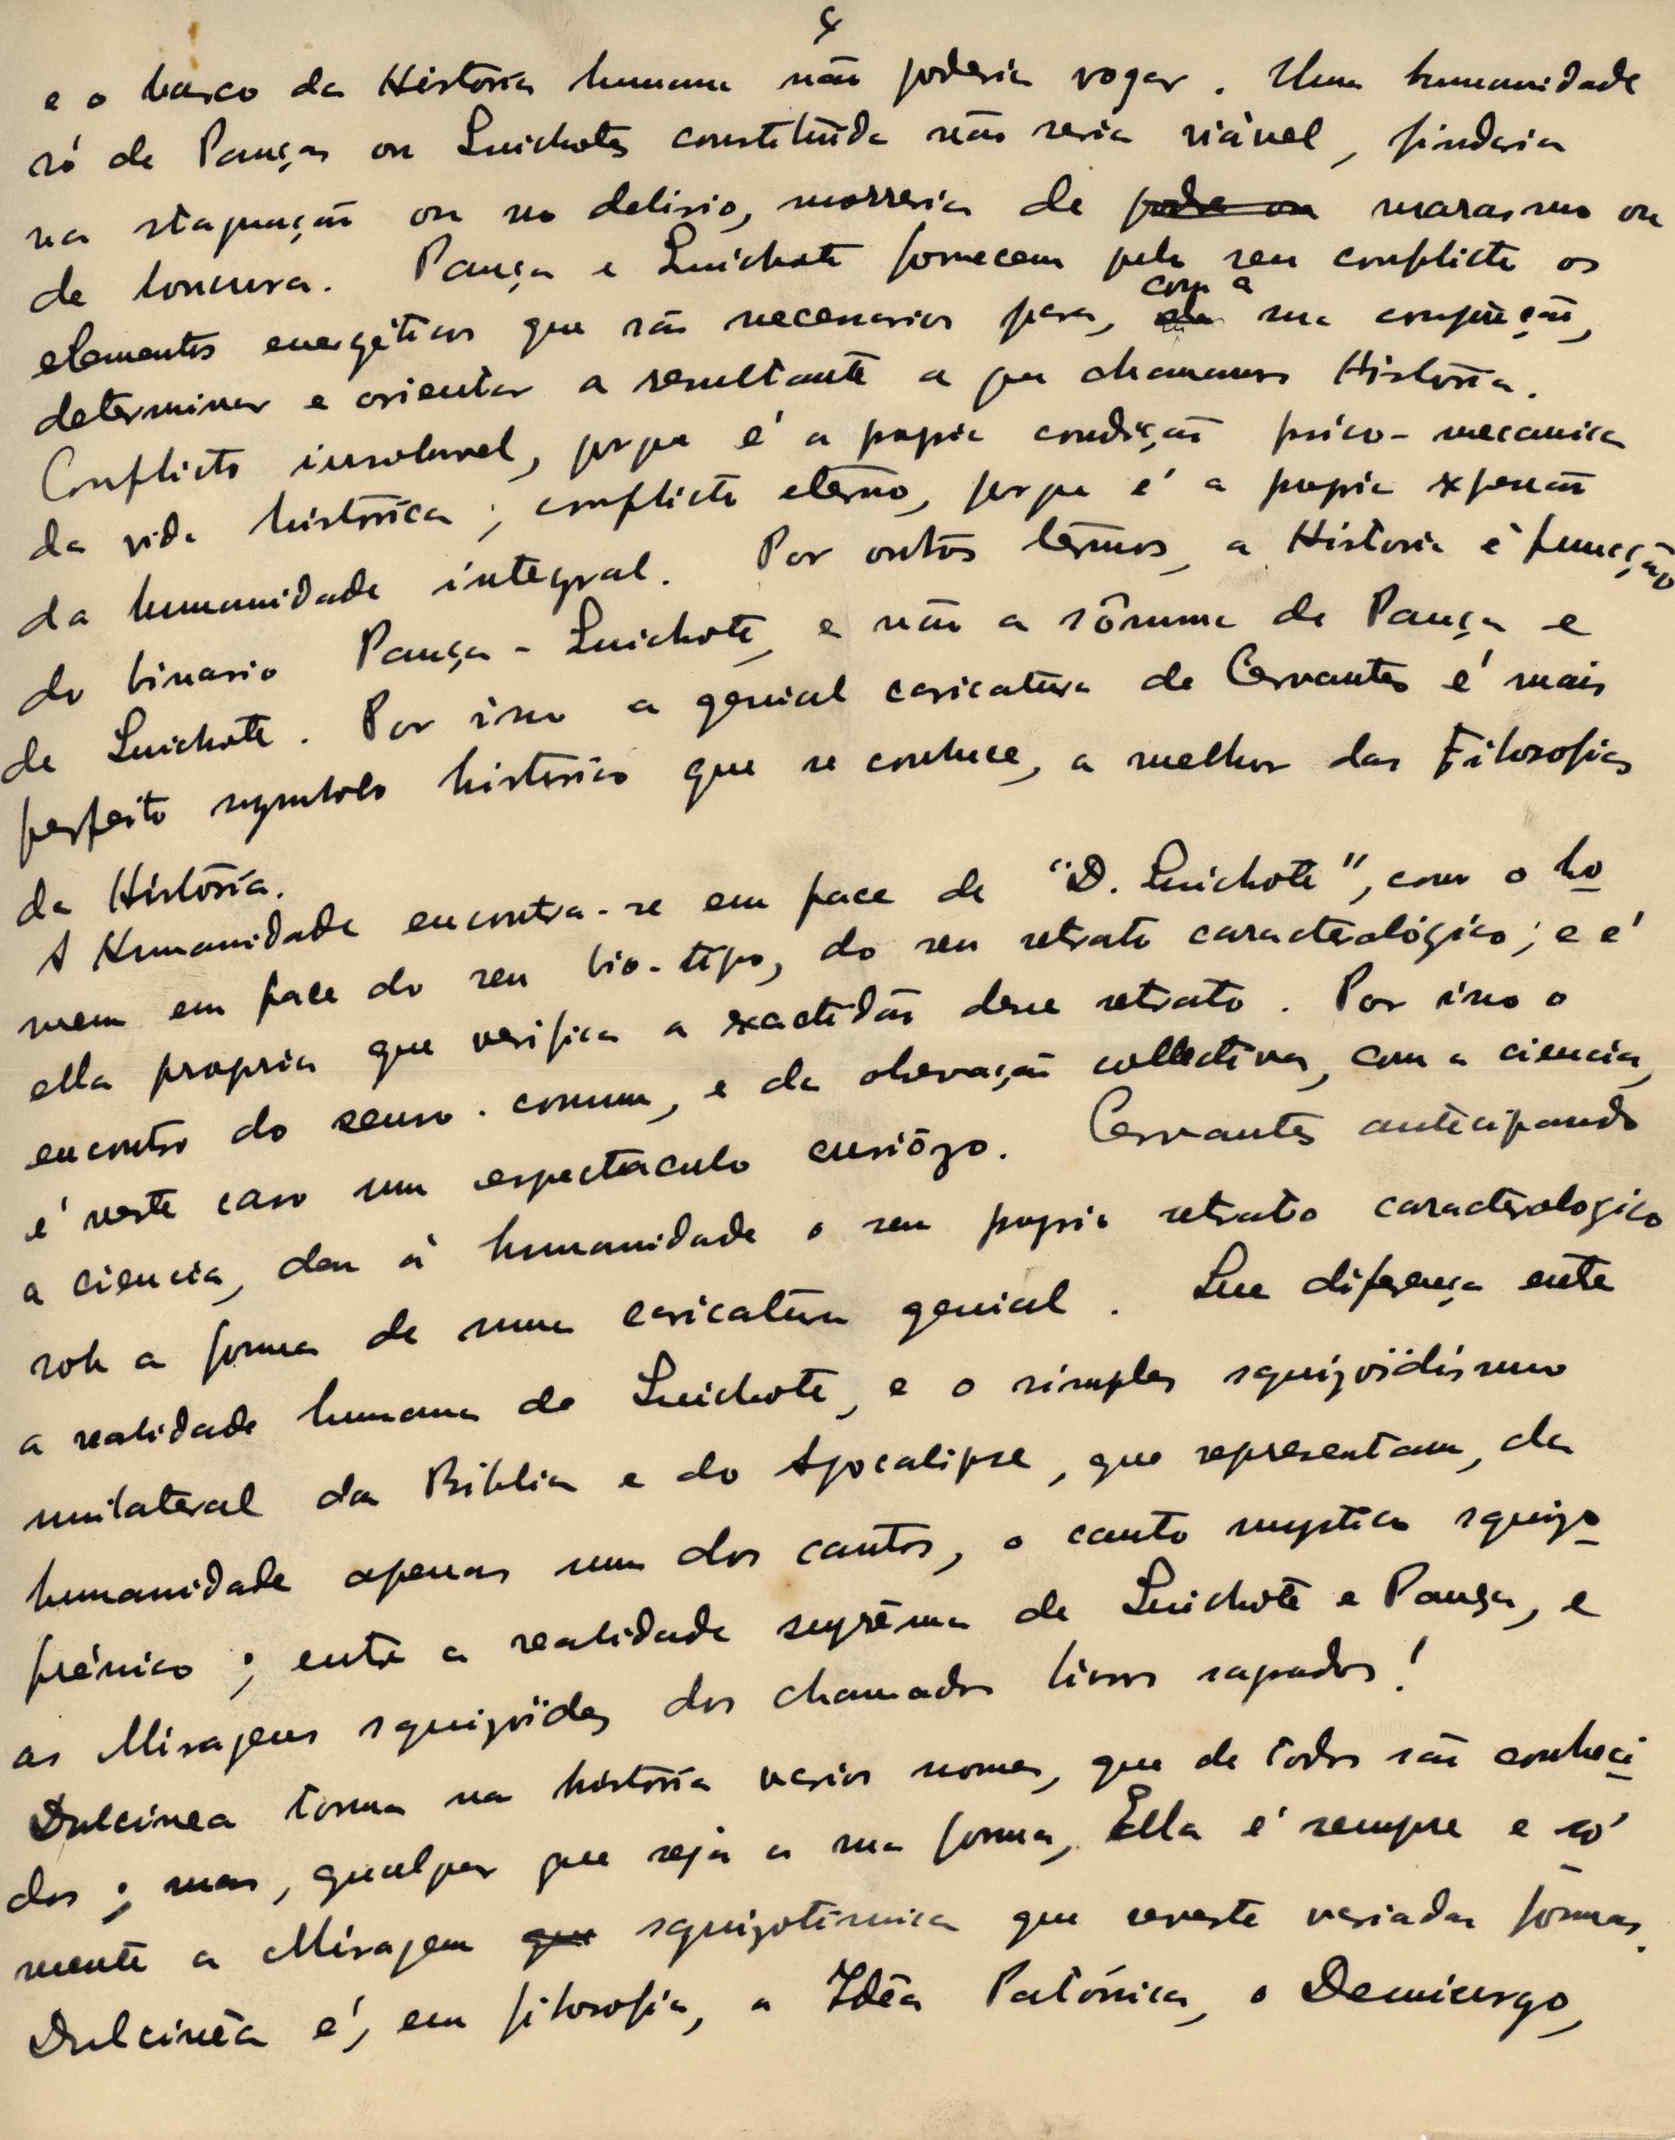 ç
e o barco da História humana não poderia vogar. Uma humanidade
só de Panças ou Quichotes constituída não seria viável, findaria
na stagnação ou no delirio, morreria de podre ou marasmo ou
de loucura. Pança e Quichote fornecem pelo seu conflicto os
elementos energéticos que são necessarios para, com a sua conjunção,
determinar e orientar a resultante a que chamamos História.
Conflicto insoluvel, porque é a propria condição psico-mecanica
da vida histórica; conflicto eterno, porque é a propria expressão
da humanidade integral. Por outros termos, a Historia é funcção
do binario Pança-Quichote, e não a sômma de Pança e
de Quichote. Por isso a genial caricatura de Cervantes é mais
perfeito symbolo historico que se conhece, a melhor das Filosofias
da História.
A Humanidade encontra-se em face de "D. Quichote", com o ho
mem em face do seu bio-tipo, do seu retrato caracterológico; e é
ella propria que verifica a exactidão desse retrato. Por isso o
encontro do senso-comum, e da observação collectiva, com a ciencia,
é neste caso um espectaculo curiôzo. Cervantes antecipando
a ciencia, deu á humanidade o seu proprio retrato caracterologico
sob a forma de uma caricatura genial. Que diferença entre
a realidade humana do Quichote, e o simples squizoïdismo
unilateral da Biblia e do Apocalipse, que representam, da
humanidade apenas um dos cantos, o canto mystico squizo
frénico; entre a realidade suprêma de Quichote e Pança, e
as Miragens squizoïdes dos chamados livros sagrados!
Dulcinea toma na história varios nomes, que de todos são conheci
dos; mas, qualquer que seja a sua forma, Ella é sempre e só
mente a Miragem que squizotimica que reveste variadas formas.
Dulcinêa é, em filosofia, a Idêa Platónica, o Demiurgo,